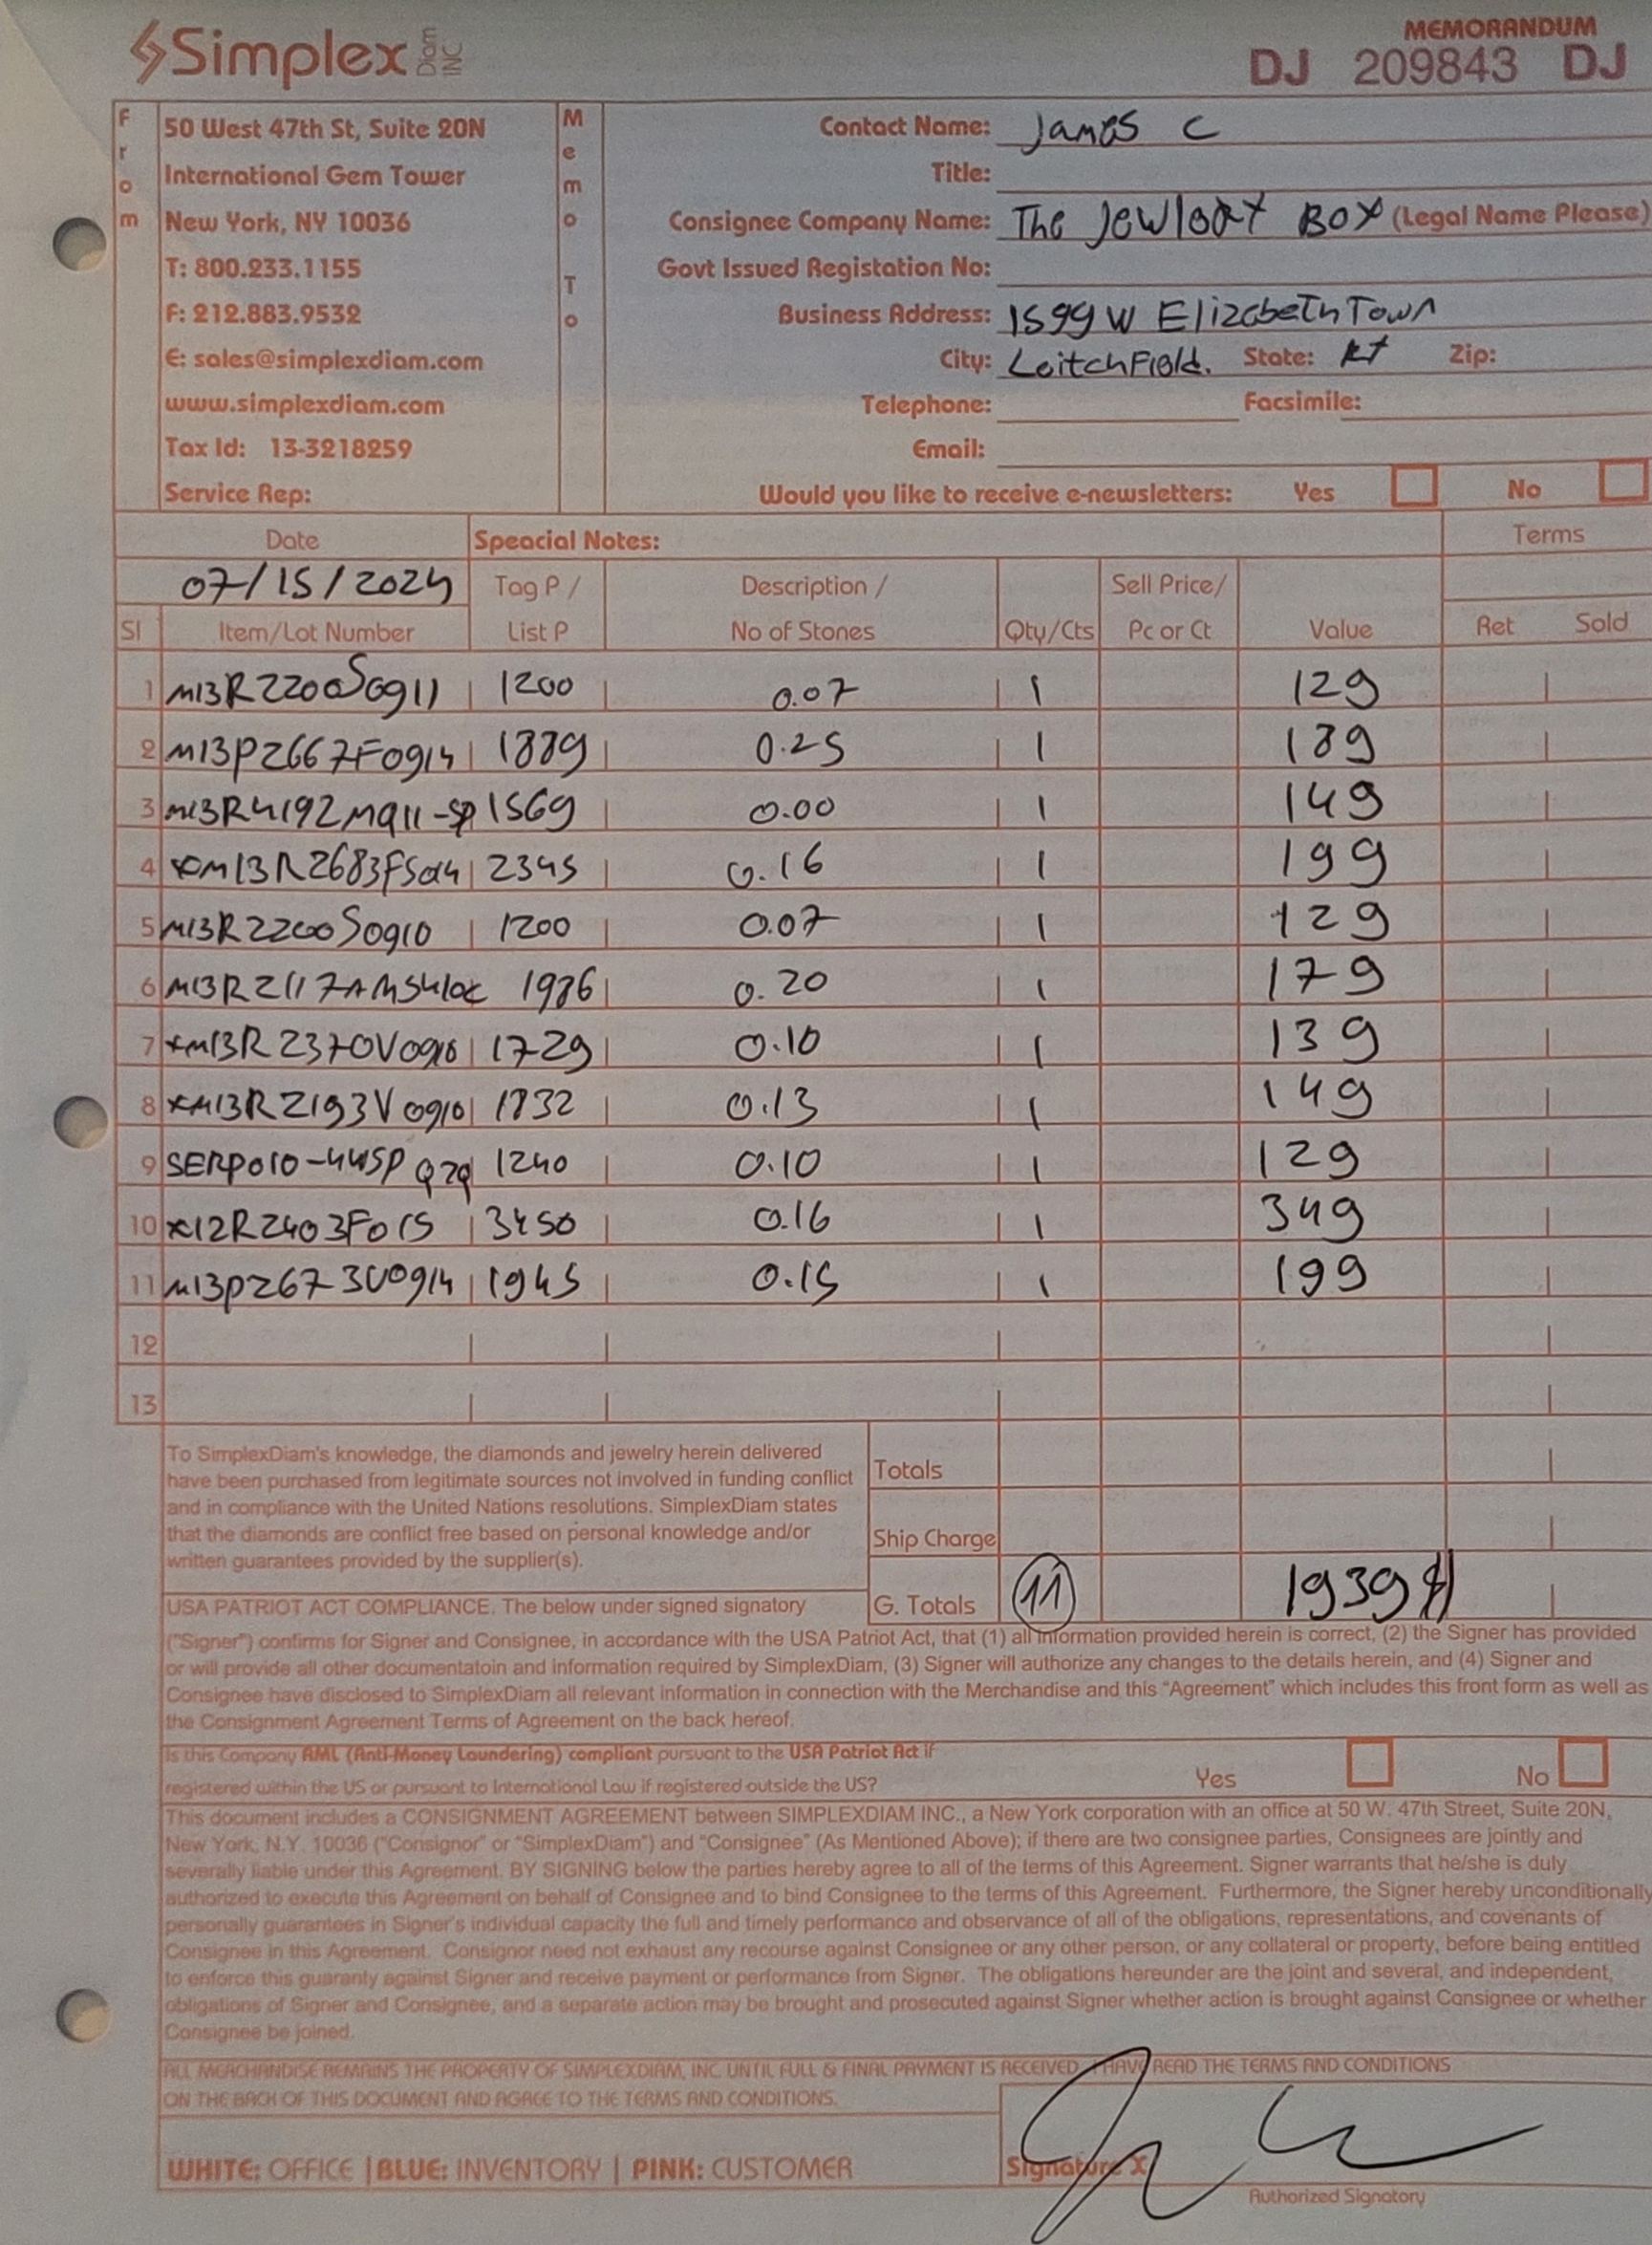 Simplex Diam INC
MEMORANDUM
DJ 209843 DJ
From
50 West 47th St, Suite 20N
International Gem Tower
New York, NY 10036
T: 800.233.1155
F: 212.883.9532
E: sales@simplexdiam.com
www.simplexdiam.com
Tax Id: 13-3218259
Service Rep:
Memo To
Contact Name: James C
Title:
Consignee Company Name: The Jewlery Box (Legal Name Please)
Govt Issued Registation No:
Business Address: 1599 W ElizabethTown
City: LeitchField. State: KY Zip:
Telephone: Facsimile:
Email:
Would you like to receive e-newsletters: Yes No
Date Speacial Notes: Terms
07/15/2024 Tag P / Description / Sell Price/
Sl Item/Lot Number List P No of Stones Qty/Cts Pc or Ct Value Ret Sold
1 M13R2200S0911 1200 0.07 1 129
2 M13P2667F0914 1889 0.25 1 189
3 M13R4192MQ11-SP 1569 0.00 1 149
4 1 2345 0.16 1 199
5 M13R2200S0910 1200 0.07 1 129
6 1986 0.20 1 179
7 XM13R2370V0910 1729 0.10 1 139
8 XM13R2193V0910 1832 0.13 1 149
9 SERP010-44SP 1240 0.10 1 129
10 X12R2403F015 3450 0.16 1 349
11 M13P2673V0914 1945 0.15 1 199
12
13
To SimplexDiam's knowledge, the diamonds and jewelry herein delivered
have been purchased from legitimate sources not involved in funding conflict
and in compliance with the United Nations resolutions. SimplexDiam states
that the diamonds are conflict free based on personal knowledge and/or
written guarantees provided by the supplier(s).
Totals
Ship Charge
G. Totals 11 1939$
USA PATRIOT ACT COMPLIANCE. The below under signed signatory
("Signer") confirms for Signer and Consignee, in accordance with the USA Patriot Act, that (1) all information provided herein is correct, (2) the Signer has provided
or will provide all other documentatoin and information required by SimplexDiam, (3) Signer will authorize any changes to the details herein, and (4) Signer and
Consignee have disclosed to SimplexDiam all relevant information in connection with the Merchandise and this "Agreement" which includes this front form as well as
the Consignment Agreement Terms of Agreement on the back hereof.
Is this Company AML (Anti-Money Laundering) compliant pursuant to the USA Patriot Act if
registered within the US or pursuant to International Law if registered outside the US? Yes No
This document includes a CONSIGNMENT AGREEMENT between SIMPLEXDIAM INC., a New York corporation with an office at 50 W. 47th Street, Suite 20N,
New York, N.Y. 10036 ("Consignor" or "SimplexDiam") and "Consignee" (As Mentioned Above); if there are two consignee parties, Consignees are jointly and
severally liable under this Agreement. BY SIGNING below the parties hereby agree to all of the terms of this Agreement. Signer warrants that he/she is duly
authorized to execute this Agreement on behalf of Consignee and to bind Consignee to the terms of this Agreement. Furthermore, the Signer hereby unconditionally
personally guarantees in Signer's individual capacity the full and timely performance and observance of all of the obligations, representations, and covenants of
Consignee in this Agreement. Consignor need not exhaust any recourse against Consignee or any other person, or any collateral or property, before being entitled
to enforce this guaranty against Signer and receive payment or performance from Signer. The obligations hereunder are the joint and several, and independent,
obligations of Signer and Consignee, and a separate action may be brought and prosecuted against Signer whether action is brought against Consignee or whether
Consignee be joined.
ALL MERCHANDISE REMAINS THE PROPERTY OF SIMPLEXDIAM, INC. UNTIL FULL & FINAL PAYMENT IS RECEIVED. I HAVE READ THE TERMS AND CONDITIONS
ON THE BACK OF THIS DOCUMENT AND AGREE TO THE TERMS AND CONDITIONS.
WHITE: OFFICE | BLUE: INVENTORY | PINK: CUSTOMER
Signature X
Authorized Signatory